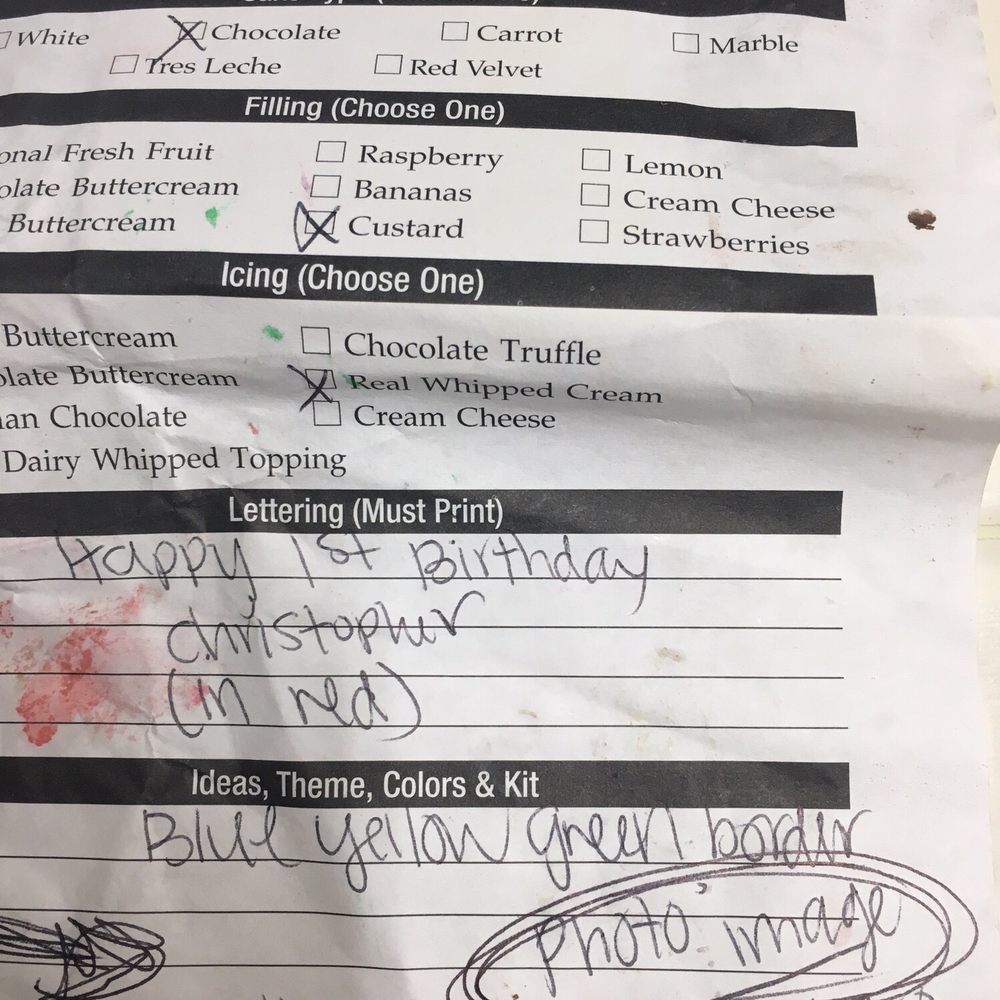 White Chocolate Carrot Marble
Tres Leche Red Velvet
Filling (Choose One)
onal Fresh Fruit Raspberry Lemon
olate Buttercream Bananas Cream Cheese
Buttercream Custard Strawberries
Icing (Choose One)
Buttercream Chocolate Truffle
olate Buttercream Real Whipped Cream
an Chocolate Cream Cheese
Dairy Whipped Topping
Lettering (Must Print)
Happy 1st Birthday
christopher
(in red)
Ideas, Theme, Colors & Kit
Blue yellow green border
Photo image